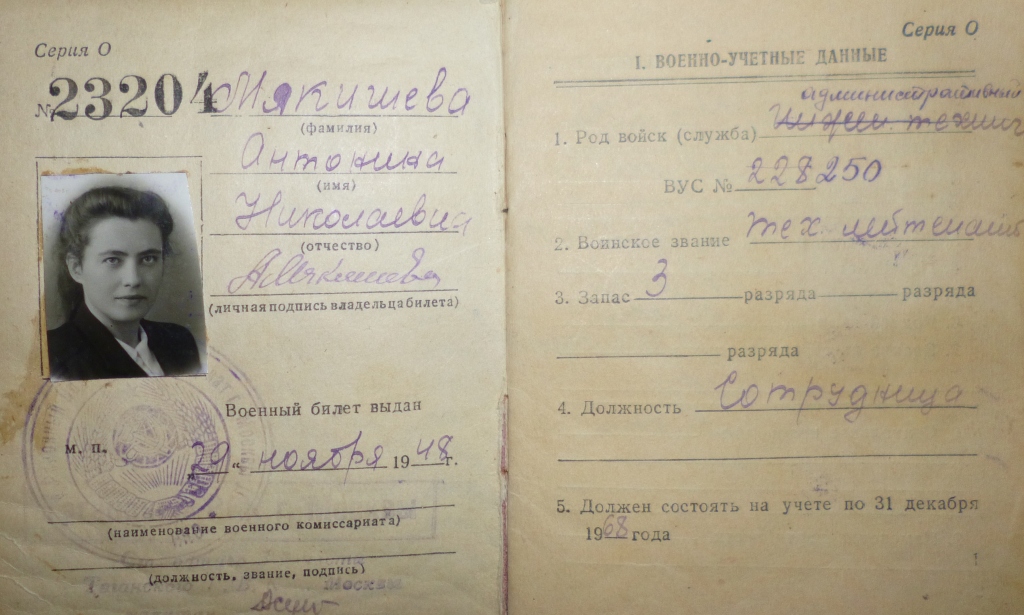 Серия О
№ 23204 Мякишева
(фамилия)
Антонина
(имя)
Николаевна
(отчество)
АМякишева
(личная подпись владельца билета)
Военный билет выдан
м. п. „29“ ноября 1948 г.
(наименование военного комиссариата)
(должность, звание, подпись)
Москвы
Серия О
I. ВОЕННО-УЧЕТНЫЕ ДАННЫЕ
административный
1. Род войск (служба)
ВУС № 228250
2. Воинское звание тех. лейтенант
3. Запас 3 разряда разряда
разряда
4. Должность Сотрудница
5. Должен состоять на учете по 31 декабря
1968 года